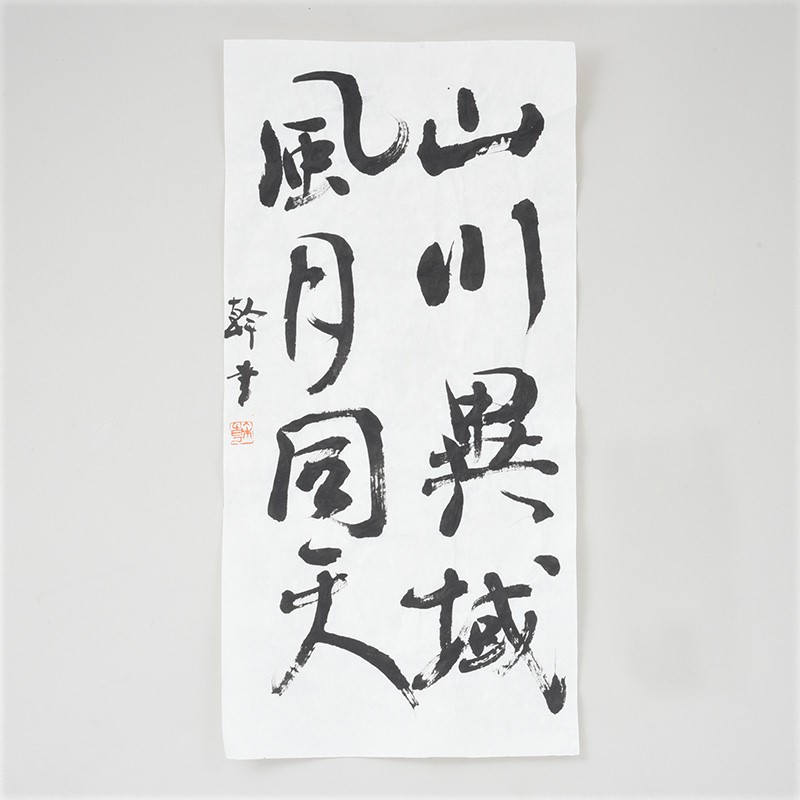 山川異域
風月同天
幹書